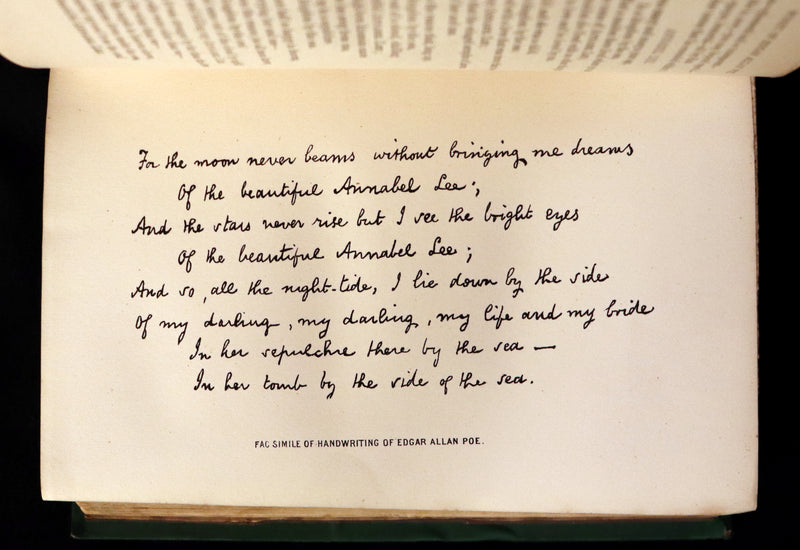 For the moon never beams without bringing me dreams
Of the beautiful Annabel Lee;
And the stars never rise but I see the bright eyes
Of the beautiful Annabel Lee;
And so, all the night-tide, I lie down by the side
Of my darling, my darling, my life and my bride
In her sepulchre there by the sea —
In her tomb by the side of the sea.
FAC SIMILE OF HANDWRITING OF EDGAR ALLAN POE.